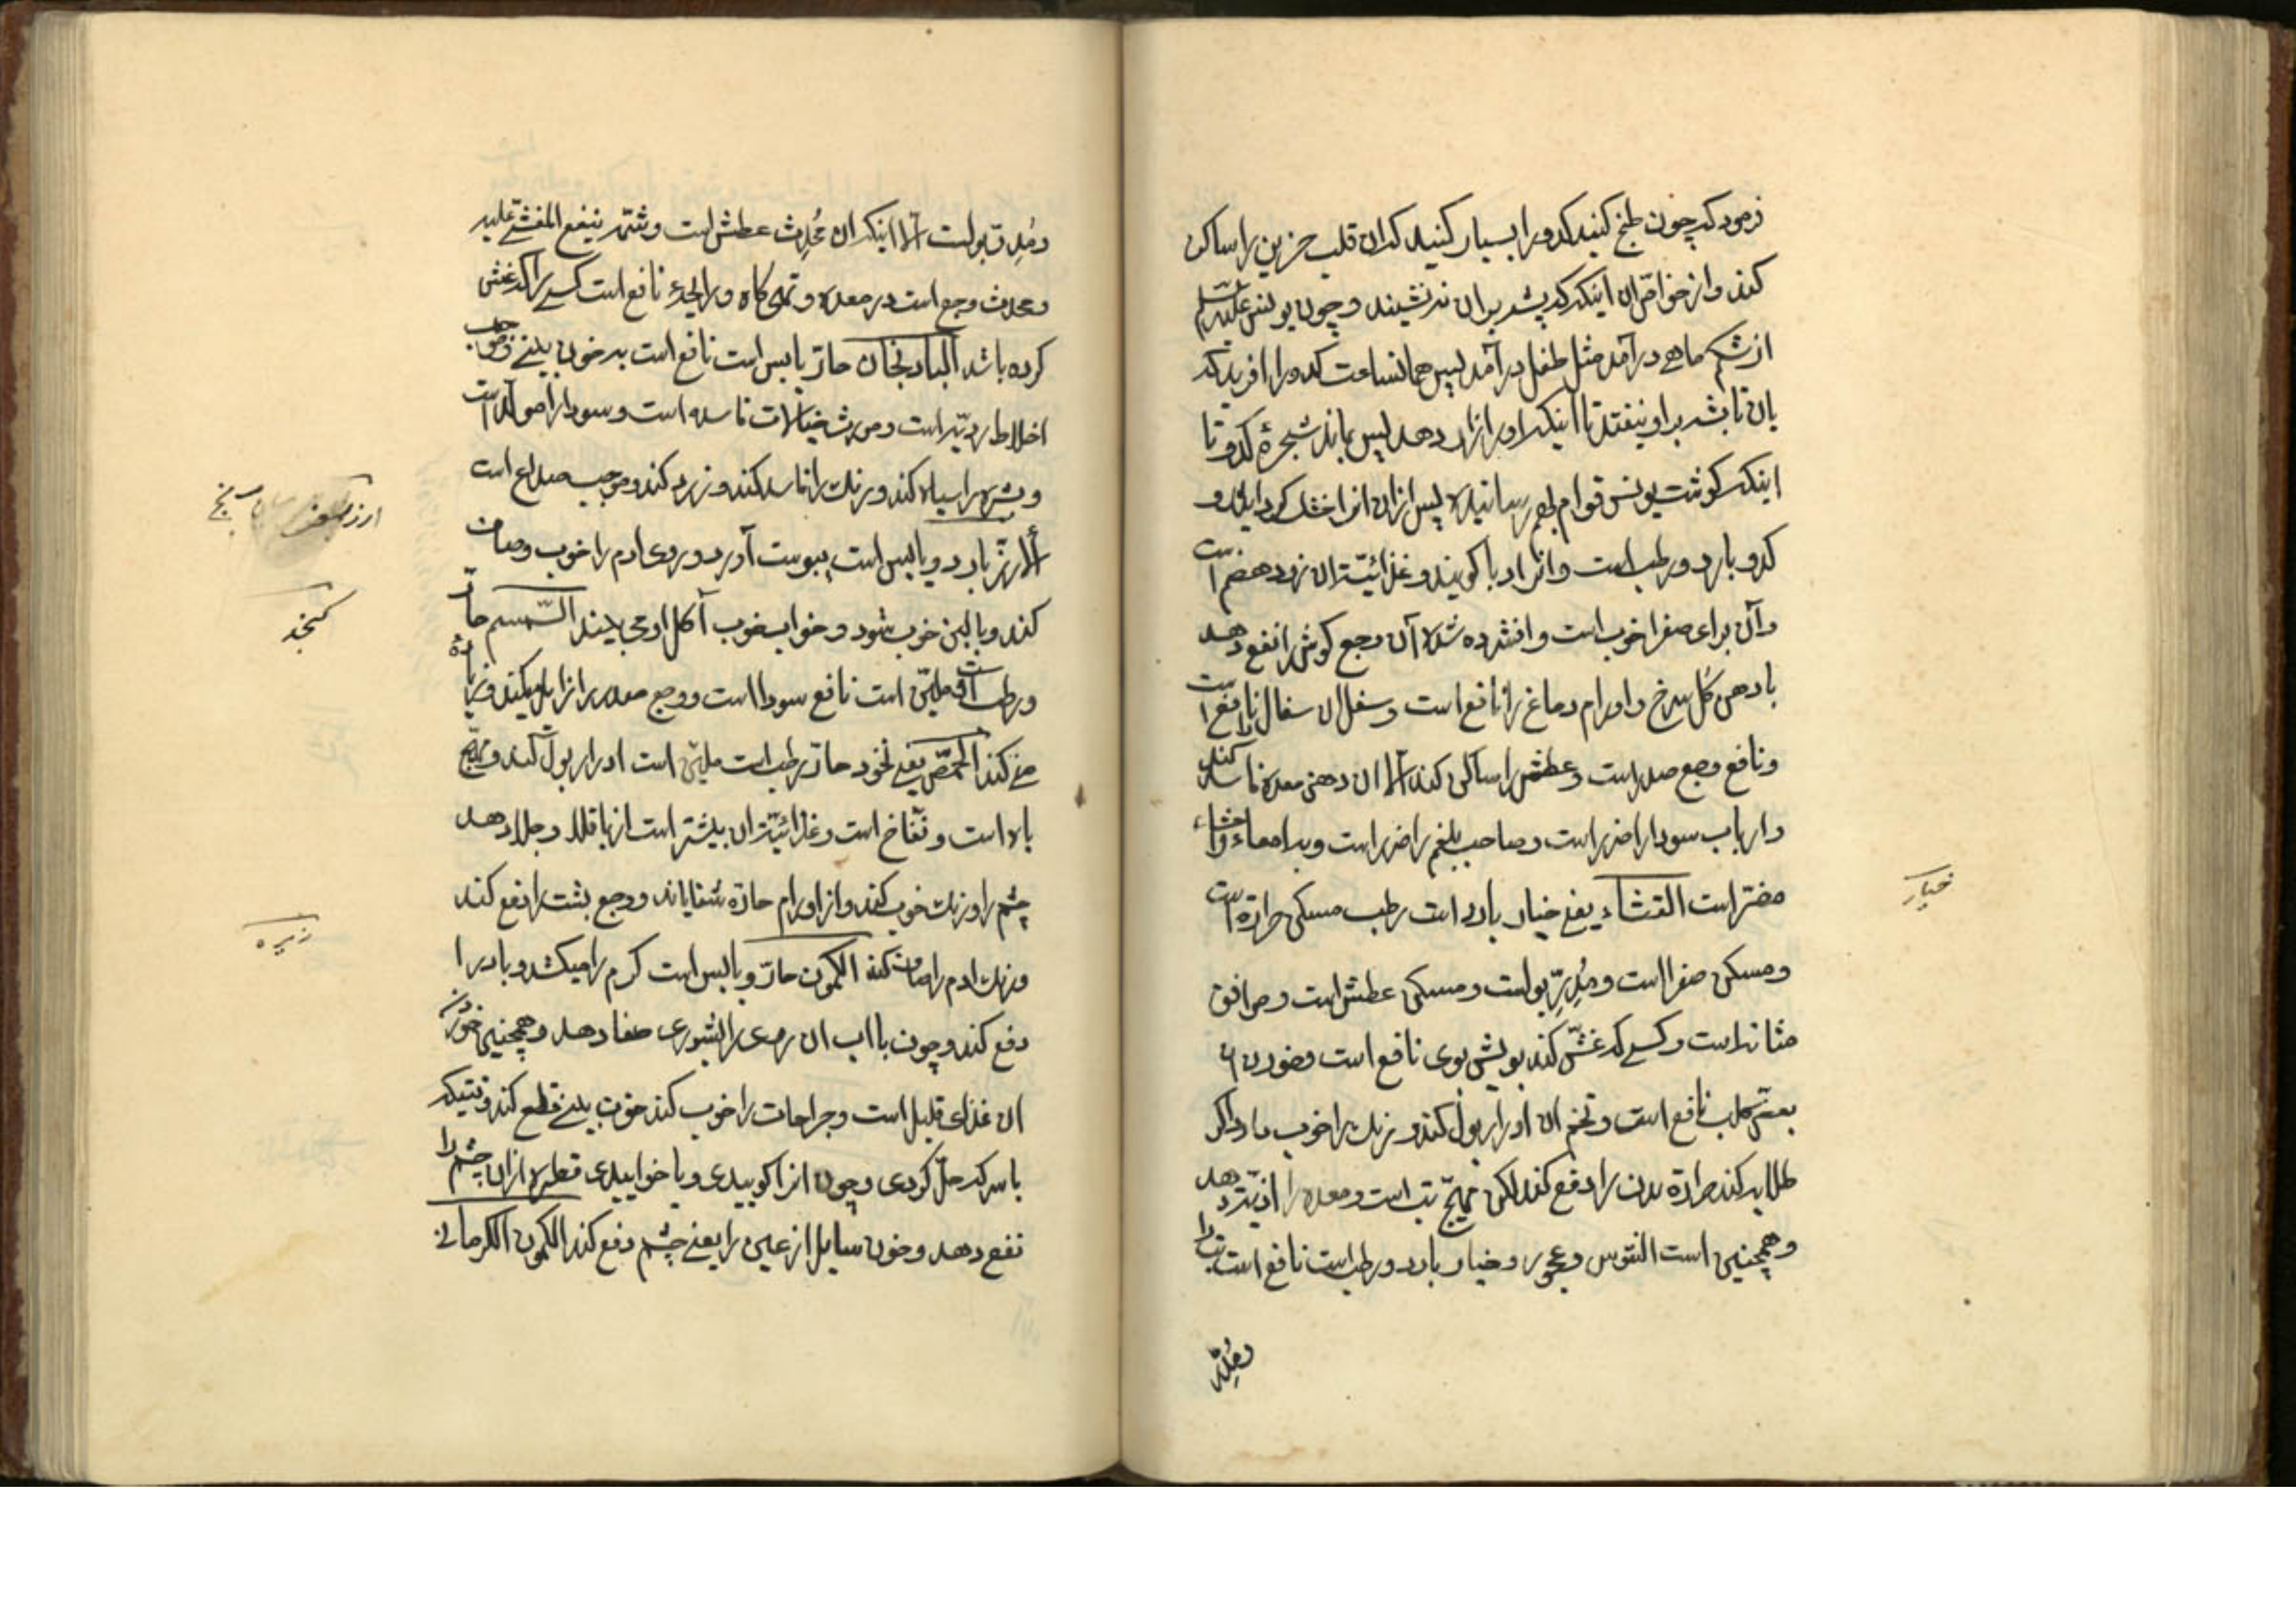 فرمود که چون طبخ کنید کدو را بسیار کنید که ان قلب حزین را ساکن
کند و از خواص ان اینکه که پشه بر ان نه نشیند و چون یونس علیه السلام
از شکم ماهی در آمد مثل طفل در آمد پس همانساعت کدو را افرید که
بان تا پشه بر او نیفتد تا اینکه او را ازار دهد پس بماند شجرهٔ کدو تا
اینکه گوشت یونس قوام بهم رسانید پس ازان انرا خشک گردانید و
کدو بارد و رطب است و انرا دبا گویند و غذائیت ان زود هضم است
و آن برای صفرا خوب است و افشرده شده آن وجع گوش را نفع دهد
با دهن گل سرخ و اورام دماغ را نافع است و سفل ان سفال را نافع است
و نافع وجع صدر است و عطش را ساکن کند الا ان دهن معده فاسد کند
و ارباب سودا را ضرر است و صاحب بلغم را ضرر است و به امعاء و احشاء
مضر است القثاء یعنی خیار بارد است رطب مسکن حرارة است
خیار
و مسکن صفرا است و مُدِرّ بولست و مسکن عطش است و موافق
مثانه است و کسی که غش کند بویش بوی نافع است و خوردن
نافع است و تخم ان ادرار بول کند و رنک را خوب دارد اگر
طلا به کند حرارة بدن را دفع کند لکن مهیج تب است و معده را اذیت دهد
و همچنین است القوس و عجور و خیار بارد و رطب است نافع است تب را
و مُدِر
و مُدِرّ بولست الا اینکه ان مُحدِث عطش است و شمّه ینفع المغشی علیه
و محدث وجع است در معده و تهی کاه و رایحهٔ نافع است کسی را که غشی
کرده باشد البادنجان حارّ یابس است نافع است به خون بینی و موجب
اخلاط ردیّه است و مورث خیالات فاسده است و سودا را مولد است
و بشره را سیاه کند و رنک را فاسد کند و زرد کند و موجب صداع است
ارز برنج
الارز بارد و یابس است یبوست آورد و روی ادم را خوب و صاف
کند و با لبن خوب شود و خواب خوب آکل او می بیند السّمسم حارّ
کنجد
و رطب است و ملین است نافع سودا است و وجع معده را زایل میکند و زیاده
منی کند الحمّص یعنی نخود حارّ رطب است ملین است ادرار بول کند و مهیّج
باه است و نفّاخ است و غذائیت ان بیشتر است از باقلا و جلا دهد
چشم را و رنک خوب کند و از اورام حارّه شفا یابد و وجع پشت را نفع کند
و رنک ادم را صاف کند الکمّون حارّ و یابس است کرم را میکشد و باد را
زیره
دفع کند و چون با اب ان روی را بشوری صفا دهد و همچنین خوردن
ان غذای قلیل است و جراحات را خوب کند خون بینی قطع کند وقتیکه
با سرکه حلّ کردی و چون انرا کوبیدی و یا خواییدی قطره ازان چشم را
نفع دهد و خون سایل از عین را یعنی چشم دفع کند الکمون الکرمانی